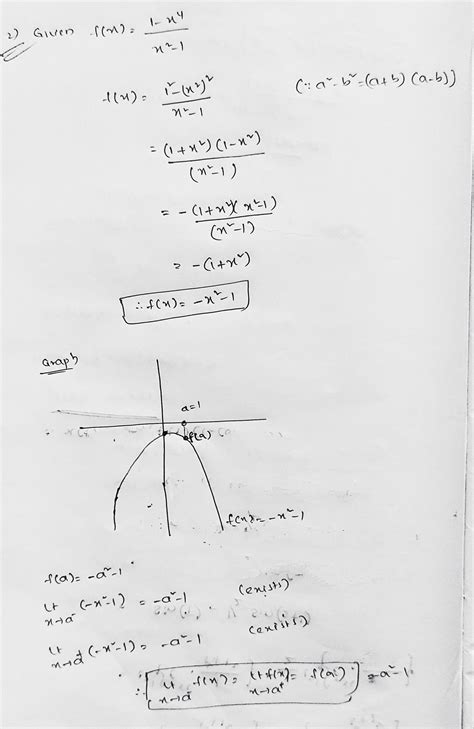 2) Given f(x) = \frac{1-x^4}{x^2-1}
f(x) = \frac{1^2-(x^2)^2}{x^2-1} (∵ a^2-b^2=(a+b)(a-b))
= \frac{(1+x^2)(1-x^2)}{(x^2-1)}
= \frac{-(1+x^2)(x^2-1)}{(x^2-1)}
= -(1+x^2)
∴ f(x) = -x^2-1
Graph
a=1
f(a)
f(x) = -x^2-1
f(a) = -a^2-1
Lt x→a^- (-x^2-1) = -a^2-1 (exists)
Lt x→a^+ (-x^2-1) = -a^2-1 (exists)
∴ Lt x→a^- f(x) = Lt x→a^+ f(x) = f(a) = -a^2-1